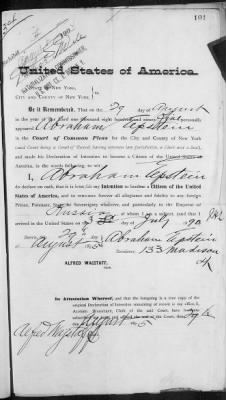 191
United States of America.
STATE OF NEW YORK,
CITY AND COUNTY OF NEW YORK, } ss.
Be it Remembered, That on the 29 day of August
in the year of the Lord one thousand eight hundred and ninety-five
appeared Abraham Epstein
in the Court of Common Pleas for the City and County of New York
(said Court being a Court of Record, having common law jurisdiction, a Clerk and a Seal),
and made his Declaration of Intention to become a Citizen of the United States of
America, in the words following, to wit:
I, Abraham Epstein
do declare on oath, that it is bona fide my Intention to become a Citizen of the United
States of America, and to renounce forever all allegiance and fidelity to any foreign
Prince, Potentate, State or Sovereignty whatever, and particularly to the Emperor of
Russia of whom I am a subject, (and that I
arrived in the United States on the day of July 1890
Sworn 29
August Abraham Epstein
Residence, 133 Madison
ALFRED WAGSTAFF,
Clerk.
In Attestation Whereof, and that the foregoing is a true copy of the
original Declaration of Intention remaining of record in my office, I,
ALFRED WAGSTAFF, Clerk of the said Court, have hereto
subscribed my name and affixed the seal of the said Court, this
August
Alfred Wagstaff